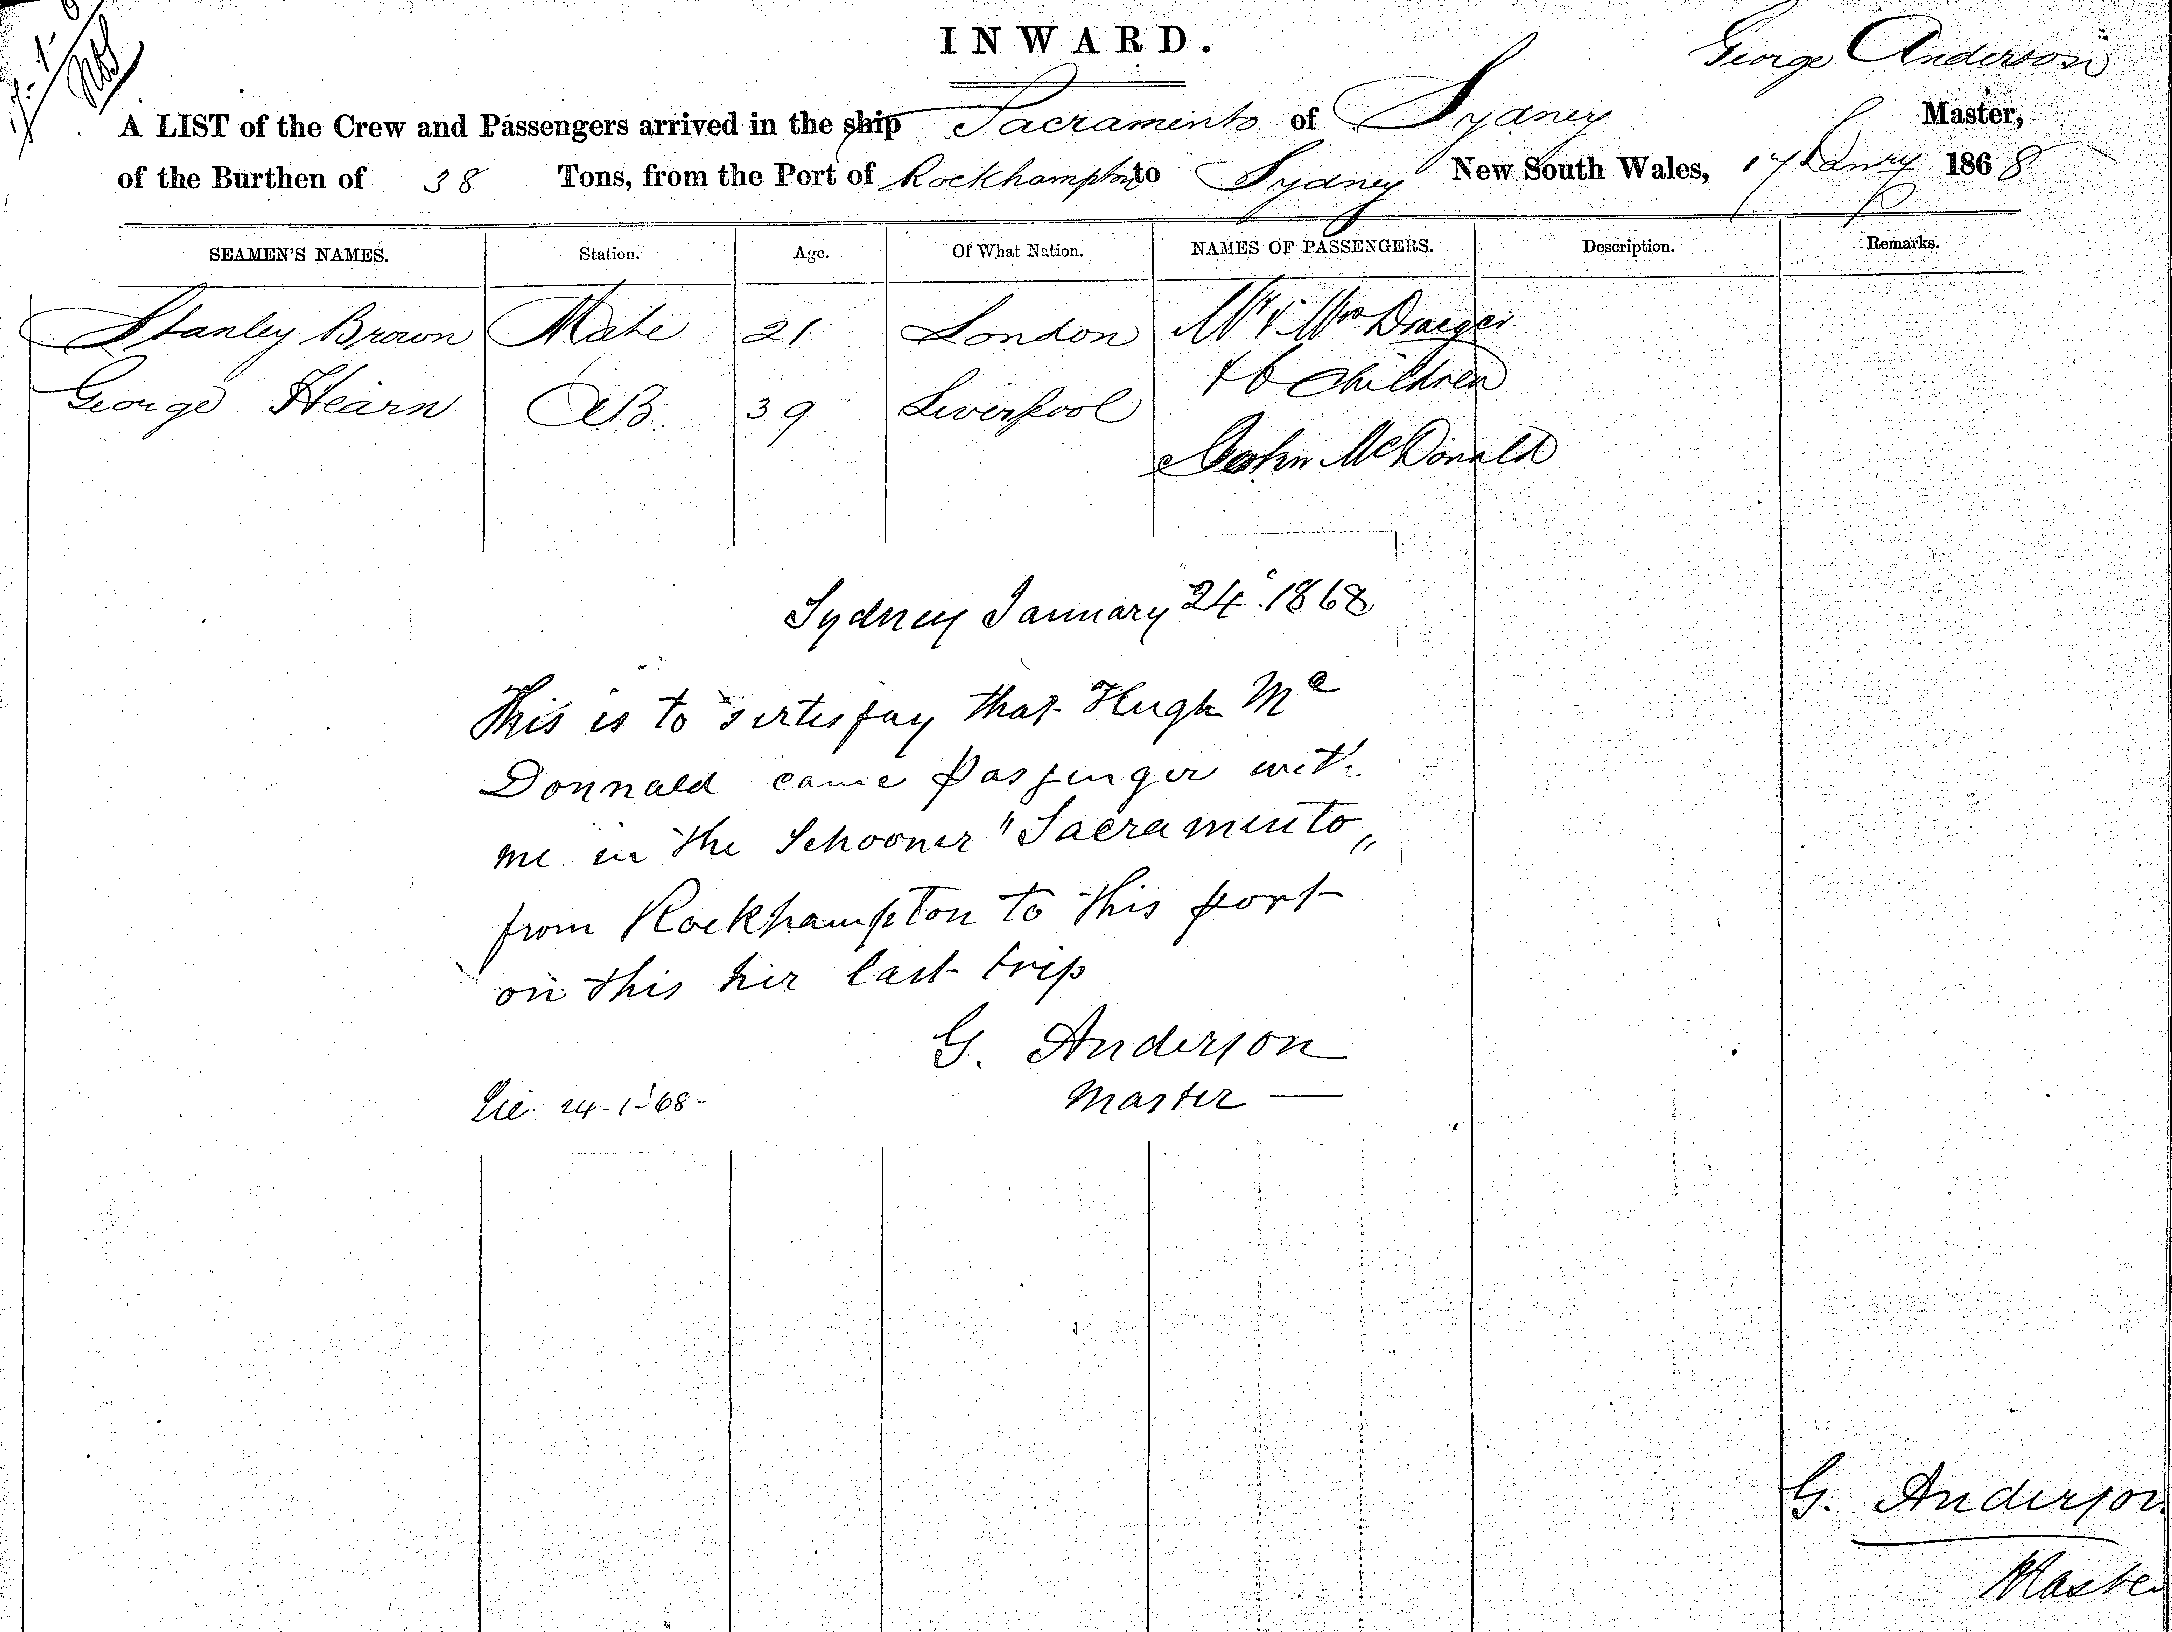 INWARD.
George Anderson
A LIST of the Crew and Passengers arrived in the ship Sacramento of Sydney Master,
of the Burthen of 38 Tons, from the Port of Rockhampton to Sydney New South Wales, 17 1868
SEAMEN'S NAMES. Station. Age. Of What Nation. NAMES OF PASSENGERS. Description. Remarks.
Stanley Brown Mate 21 London Mr & Mrs Draeger
& 6 Children
George Hearn AB. 39 Liverpool
John McDonald
Sydney January 24 1868
This is to sertisfay that Hugh Mc
Donnald came passinger with
me in the Schooner "Sacramento„
from Rockhampton to this port
on this her last trip
G. Anderson
Master —
24-1-68-
G. Anderson
Master